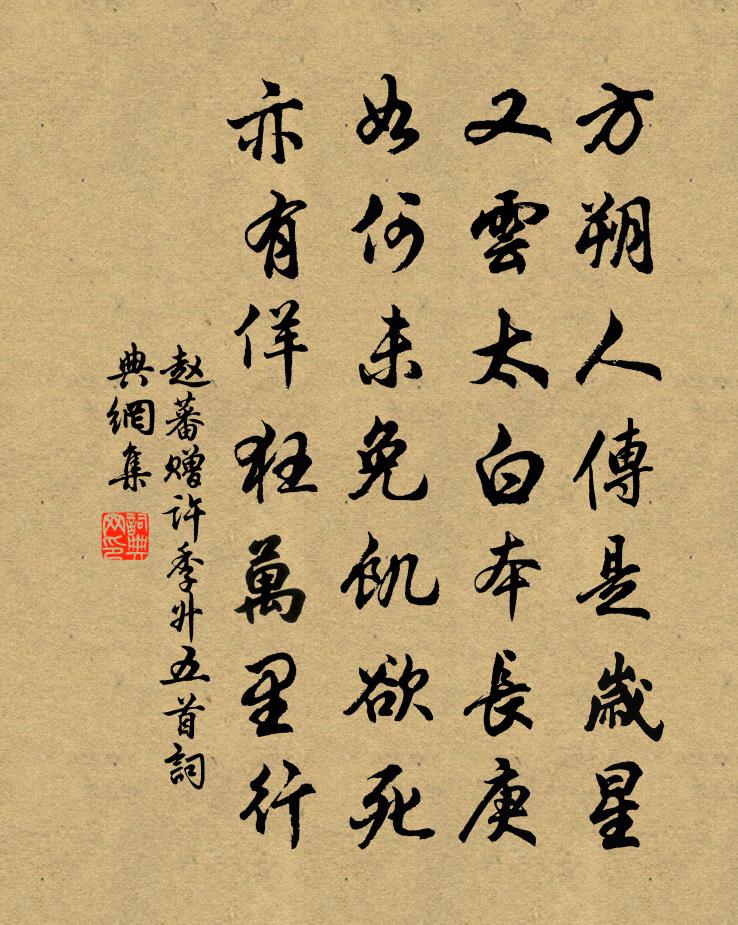 方朔人傳是歲星
又雲太白本長庚
如何未免飢欲死
亦有佯狂萬里行
赵蕃贈许季升五首詞
典網集
詞典
网印